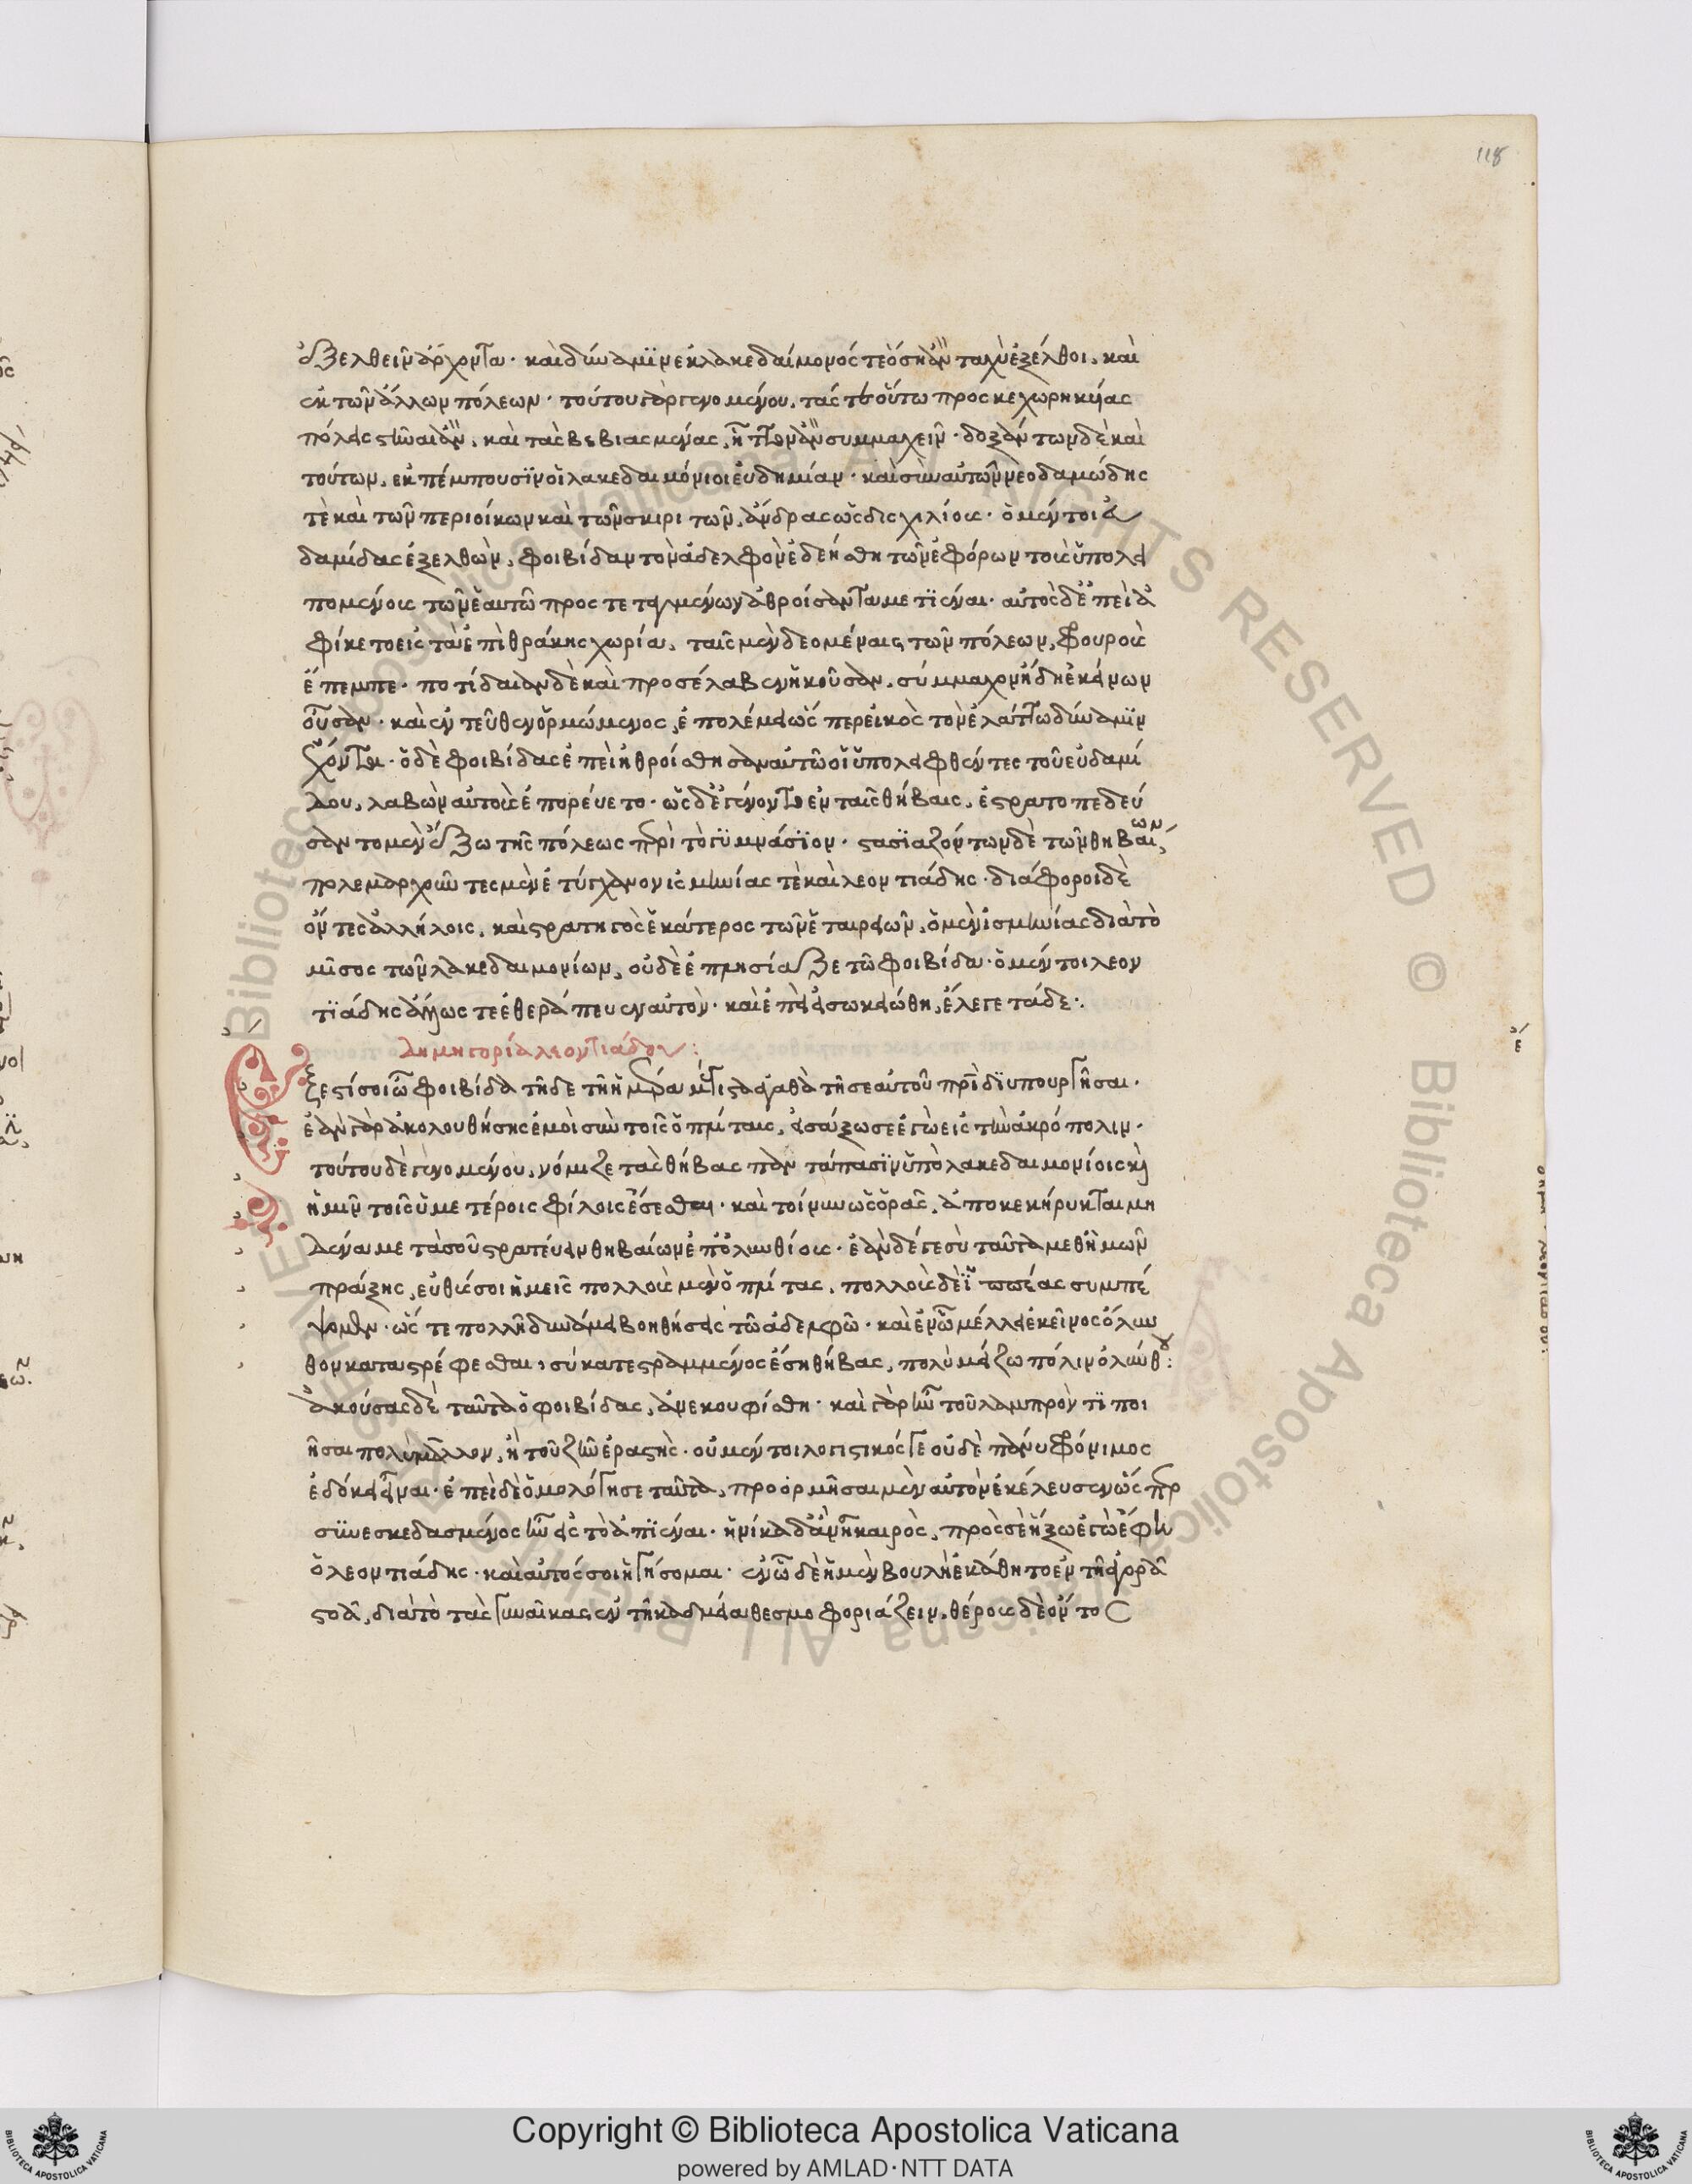 118
ἐξελθεῖν ἄρχοντα· καὶ δύναμιν ἐκ λακεδαίμονός τε ὅση ἂν ταχὺ ἐξέλθοι, καὶ
ἐκ τῶν ἄλλων πόλεων· τούτου γὰρ γενομένου, τάς τε οὔπω προσκεχωρηκυίας
πόλεις στῆναι ἂν, καὶ τὰς βεβιασμένας, ἧττον ἂν συμμαχεῖν· δοξάντων δὲ καὶ
τούτων, ἐκπέμπουσιν οἱ λακεδαιμόνιοι εὐδαμίδαν· καὶ σὺν αὐτῶ νεοδαμώδης
τὲ καὶ τῶν περιοίκων καὶ τῶν σκιριτῶν, ἄνδρας ὡς δισχιλίους· ὁ μέντοι εὐ
δαμίδας ἐξελθὼν, φοιβίδαν τὸν ἀδελφὸν ἐδεήθη τῶν ἐφόρων τοὺς ὑπολει
πομένους τῶν ἑαυτῶ προστεταγμένων ἀθροίσαντα μετιέναι· αὐτὸς δὲ ἐπεὶ ἀ
φίκετο εἰς τὰ ἐπὶ θράκης χωρία, ταῖς μὲν δεομέναις τῶν πόλεων, φρουροὺς
ἔπεμπε· ποτίδαιαν δὲ καὶ προσέλαβεν ἑκοῦσαν, σύμμαχον ἤδη ἐκείνων
οὖσαν· καὶ ἐντεῦθεν ὁρμώμενος, ἐπολέμει ὥσπερ εἰκὸς τὸν ἐλάττω δύναμιν
ἔχοντα· ὁ δὲ φοιβίδας ἐπεὶ ἠθροίσθησαν αὐτῶ οἱ ὑπολειφθέντες τοῦ εὐδαμί
δου, λαβὼν αὐτοὺς ἐπορεύετο· ὡς δ' ἐγένοντο ἐν ταῖς θήβαις, ἐστρατοπεδεύ
σαντο μὲν ἔξω τῆς πόλεως περὶ τὸ γυμνάσιον· στασιαζόντων δὲ τῶν θηβαίων,
πολεμαρχοῦντες μὲν ἐτύγχανον ἰσμηνίας τὲ καὶ λεοντιάδης· διάφοροι δὲ
ὄντες ἀλλήλοις, καὶ στρατηγὸς ἑκάτερος τῶν ἑταιρειῶν, ὁ μὲν ἰσμηνίας διὰ τὸ
μῖσος τῶν λακεδαιμονίων, οὐδὲ ἐπλησίαζε τῶ φοιβίδα· ὁ μέντοι λεον
τιάδης ἄλλως τε ἐθεράπευεν αὐτὸν· καὶ ἐπεὶ εἰσωκειώθη, ἔλεγε τάδε:·
Δημηγορία λεοντιάδου:
ἔξεστί σοι ὦ φοιβίδα τῆδε τῆ ἡμέρα μέγιστα ἀγαθὰ τῆ σεαυτοῦ πατρίδι ὑπουργῆσαι·
ἐὰν γὰρ ἀκολουθήσης ἐμοὶ σὺν τοῖς ὁπλίταις, εἰσάξω σε ἐγὼ εἰς τὴν ἀκρόπολιν·
τούτου δὲ γενομένου, νόμιζε τὰς θήβας παντάπασιν ὑπὸ λακεδαιμονίοις καὶ
ἡμῖν τοῖς ὑμετέροις φίλοις ἔσεσθαι· καὶ τοι νῦν ὡς ὁρᾶς, ἀποκεκήρυκται μη
δένα μετὰ σοῦ στρατεύειν θηβαίων ἐπ' ὀλυνθίους· ἐὰν δέ γε σὺ ταῦτα μεθ' ἡμῶν
πράξης, εὐθύς σοι ἡμεῖς πολλοὺς μὲν ὁπλίτας, πολλοὺς δὲ ἱππέας συμπέμ
ψομεν· ὥστε πολλῆ δυνάμει βοηθήσεις τῶ ἀδελφῶ· καὶ ἐν ὧ μέλλει ἐκεῖνος ὄλυν
θον καταστρέφεσθαι, σὺ κατεστραμμένος ἔση θήβας, πολὺ μείζω πόλιν ὀλύνθου:
ἀκούσας δὲ ταῦτα ὁ φοιβίδας, ἀνεκουφίσθη· καὶ γὰρ ἦν τοῦ λαμπρόν τι ποι
ῆσαι πολὺ μᾶλλον, ἢ τοῦ ζῆν ἐραστὴς· οὐ μέντοι λογιστικός γε οὐδὲ πάνυ φρόνιμος
ἐδόκει εἶναι· ἐπεὶ δὲ ὡμολόγησε ταῦτα, προορμῆσαι μὲν αὐτὸν ἐκέλευσεν ὥσπερ
συνεσκευασμένος ἦν εἰς τὸ ἀπιέναι· ἡνίκα δ' ἂν ἦ καιρὸς, πρὸς σὲ ἥξω ἐγὼ ἔφη
ὁ λεοντιάδης· καὶ αὐτός σοι ἡγήσομαι· ἐν ὧ δὲ ἡ μὲν βουλὴ ἐκάθητο ἐν τῆ ἀγορᾶ
στοᾶ, διὰ τὸ τὰς γυναῖκας ἐν τῆ καδμεία θεσμοφοριάζειν, θέρους δὲ ὄντος
Copyright © Biblioteca Apostolica Vaticana
powered by AMLAD·NTT DATA